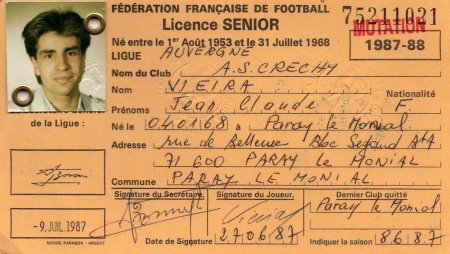 FÉDÉRATION FRANÇAISE DE FOOTBALL
75211021
Licence SENIOR
MUTATION
Né entre le 1er Août 1953 et le 31 Juillet 1968
1987-88
LIGUE AUVERGNE
Nom du Club A.S. CRECHY
Nom VIEIRA
Nationalité
Prénoms Jean Claude F
de la Ligue :
Né le 04.01.68 à Paray le Monial
Adresse rue de Bellevue Bloc
71 600 PARAY LE MONIAL
Commune PARAY LE MONIAL
Signature du Secrétaire.
Signature du Joueur.
Dernier Club quitté
Paray le Monial
- 9. JUIL. 1987
MOORE PARAGON - ARGENT
Date de Signature 27.06.87
Indiquer la saison 86.87